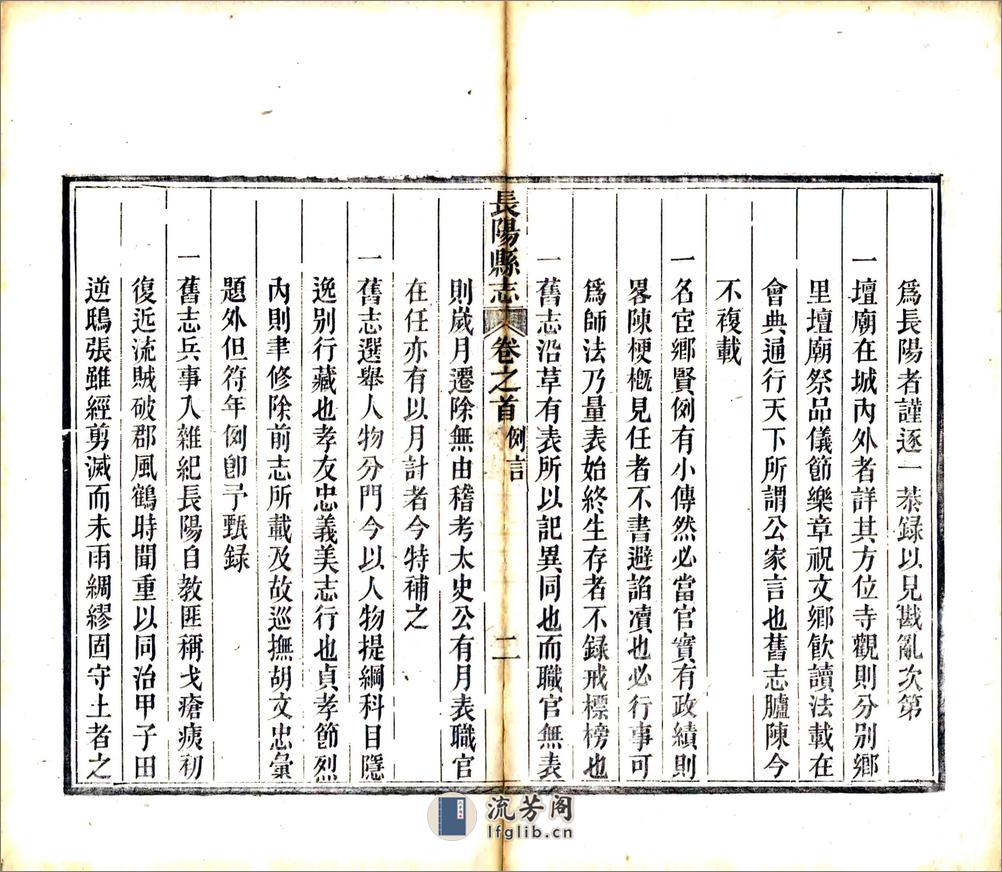 爲長陽者謹逐一恭録以見戡亂次第
一壇廟在城内外者詳其方位寺觀則分别鄉
里壇廟祭品儀節樂章祝文鄉飲讀法載在
會典通行天下所謂公家言也舊志臚陳今
不複載
一名宦鄉賢例有小傳然必當官實有政績則
畧陳梗概見任者不書避諂凟也必行事可
爲師法乃量表始終生存者不録戒標榜也
一舊志沿革有表所以記異同也而職官無表
長陽縣志 卷之首 例言 二
則歲月遷除無由稽考太史公有月表職官
在任亦有以月計者今特補之
一舊志選舉人物分門今以人物提綱科目隱
逸别行藏也孝友忠義美志行也貞孝節烈
内則聿修除前志所載及故巡撫胡文忠彙
題外但符年例卽予甄録
一舊志兵事入雜紀長陽自教匪稱戈瘡痍初
復近流賊破郡風鶴時聞重以同治甲子田
逆鴟張雖經剪滅而未雨綢繆固守土者之
流芳阁
lfglib.cn